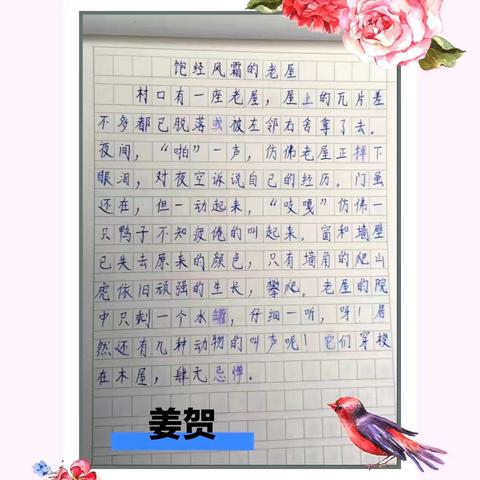 饱经风霜的老屋
村口有一座老屋，屋上的瓦片差
不多都已脱落或被左邻右舍拿了去。
夜间，“啪”一声，仿佛老屋正掉下
眼泪，对夜空诉说自己的经历。门虽
还在，但一动起来，“吱嘎”仿佛一
只鸭子不知疲倦的叫起来。窗和墙壁
已失去原来的颜色，只有墙角的爬山
虎依旧顽强的生长，攀爬。老屋的院
中只剩一个水罐，仔细一听，呀！居
然还有几种动物的叫声呢！它们穿梭
在木屋，肆无忌惮。
姜贺